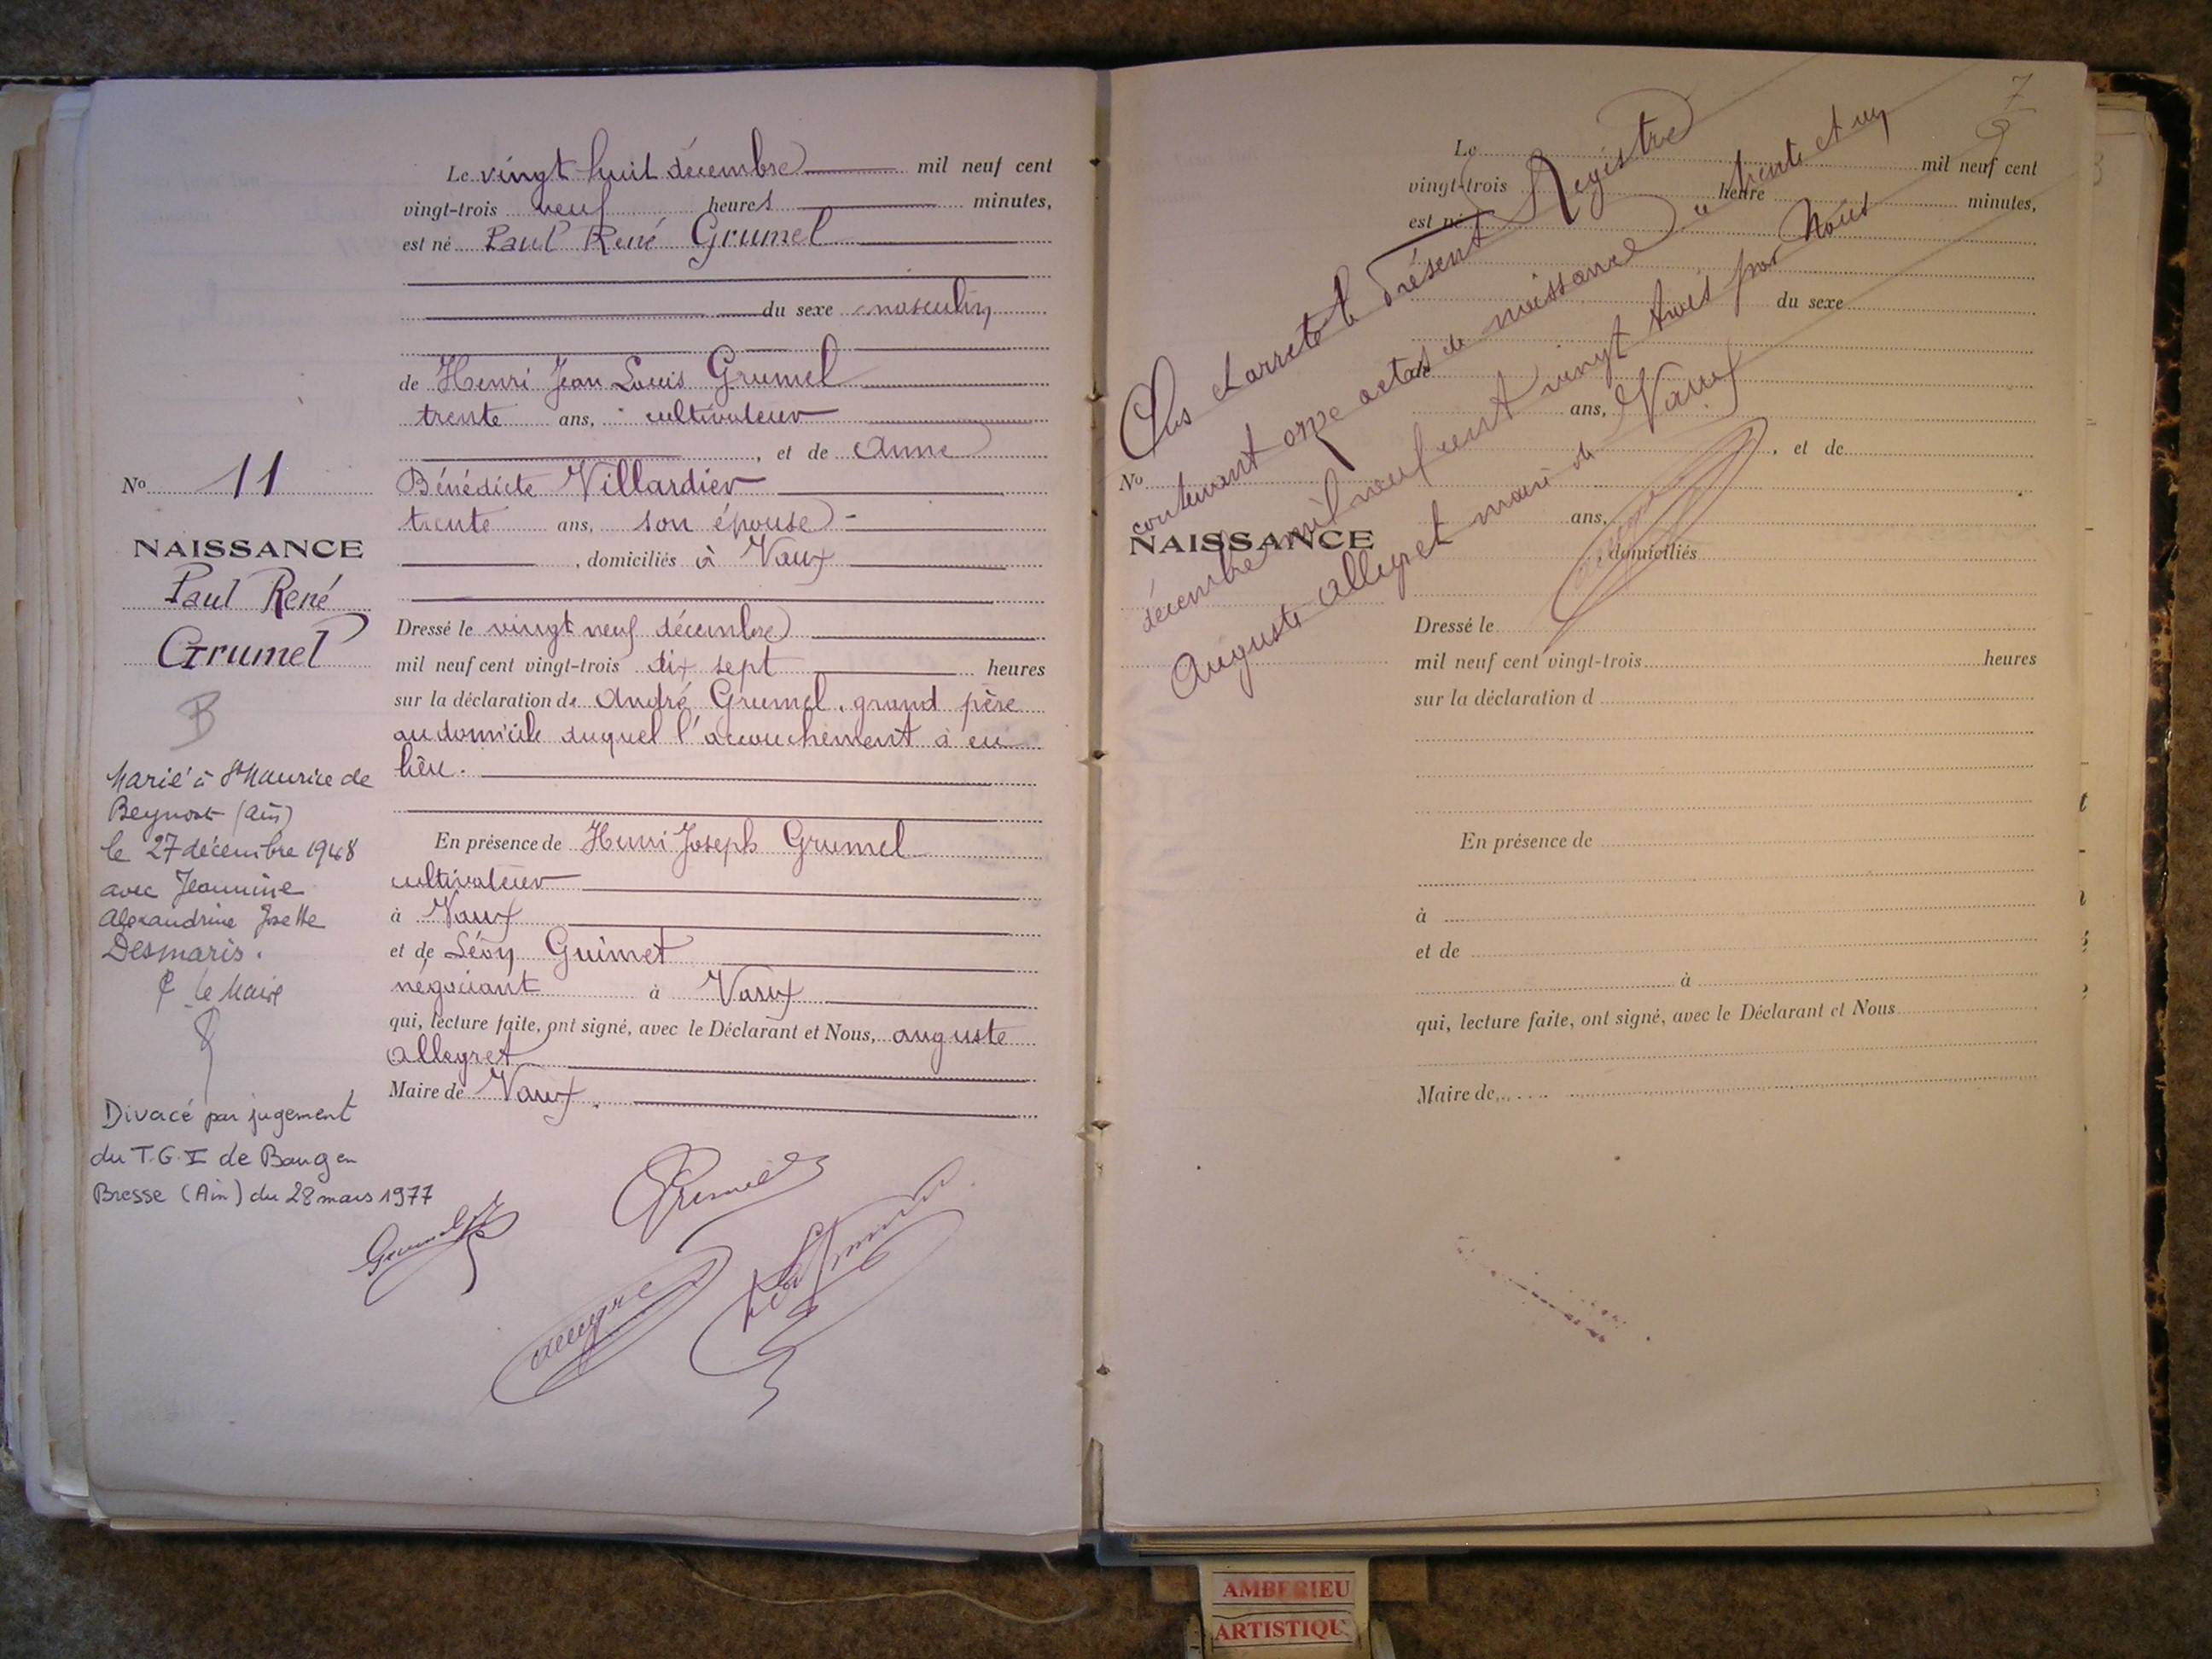 Le vingt huit décembre mil neuf cent
vingt-trois neuf heures minutes,
est né Paul René Grumel
du sexe masculin
de Henri Jean Louis Grumel
trente ans, cultivateur
, et de Anne
Bénédicte Villardier
trente ans, son épouse
, domiciliés à Vaux
Dressé le vingt neuf décembre
mil neuf cent vingt-trois dix sept heures
sur la déclaration de André Grumel, grand père
au domicile duquel l'accouchement a eu
lieu.
En présence de Henri Joseph Grumel
cultivateur
à Vaux
et de Léon Guimet
négociant à Vaux
qui, lecture faite, ont signé, avec le Déclarant et Nous, Auguste
Alleyret
Maire de Vaux.
No 11
NAISSANCE
Paul René
Grumel
B
Marié à St Maurice de
Beynost (Ain)
le 27 décembre 1948
avec Jeannine
Alexandrine Josette
Desmaris.
le Maire
Divorcé par jugement
du T.G.I de Bourg en
Bresse (Ain) du 28 mars 1977
Grumel
7
Clos et arrêté le présent Registre
contenant onze actes de naissance le trente et un
décembre mil neuf cent vingt trois par Nous
Auguste Alleyret maire de Vaux
Le mil neuf cent
vingt-trois heure minutes,
est né
du sexe
de
ans,
, et de
ans,
, domiciliés
No
NAISSANCE
Dressé le
mil neuf cent vingt-trois heures
sur la déclaration d
En présence de
à
et de
à
qui, lecture faite, ont signé, avec le Déclarant et Nous
Maire de
AMBERIEU
ARTISTIQU